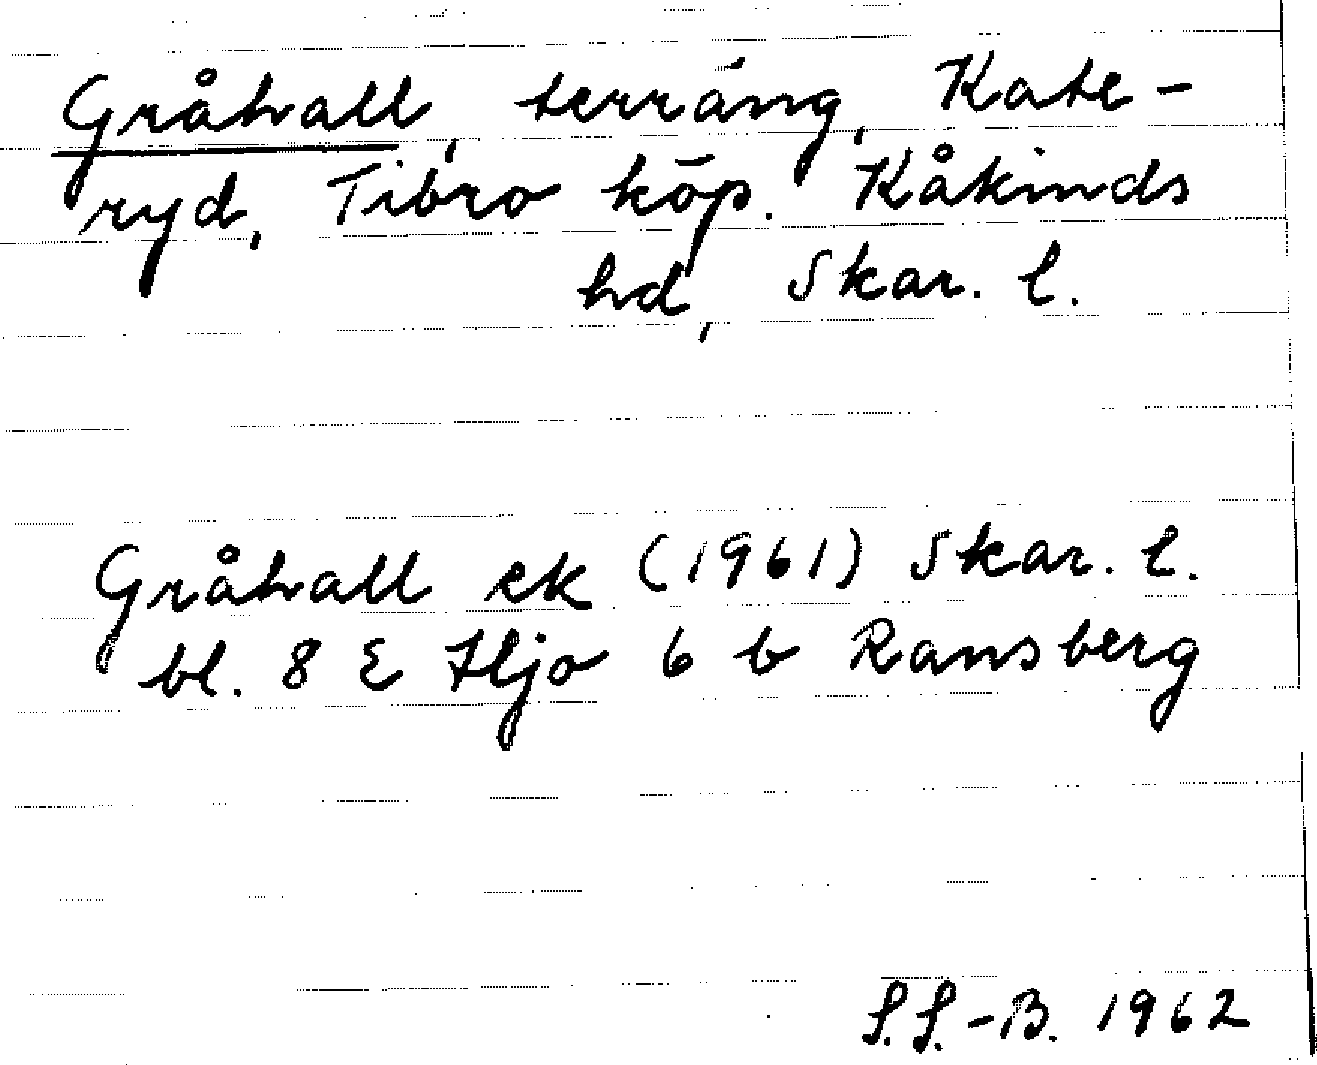 Gråhall, terräng, Kate-
ryd, Tibro köp. Kåkinds
hd, Skar. l.
Gråhall ek (1961) Skar. l.
bl. 8 E Hjo 6 b Ransberg
S.S.-B. 1962